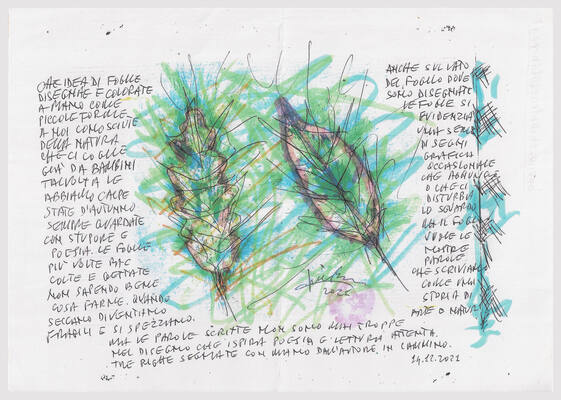 CHE IDEA DI FOGLIE
DISEGNATE E COLORATE
A MANO COME
PICCOLE FORME
A NOI CONOSCIUTE
DELLA NATURA
CHE CI COGLIE
GIÀ DA BAMBINI
TALVOLTA LE
ABBIAMO CALPE
STATE D'AUTUNNO
SEMPRE GUARDATE
CON STUPORE E
POESIA. LE FOGLIE
PIÙ VOLTE RAC
COLTE E GETTATE
NON SAPENDO BENE
COSA FARNE. QUANDO
SECCANO DIVENTIAMO
FRAGILI E SI SPEZZIAMO.
ANCHE SUL LATO
DEL FOGLIO DOVE
SONO DISEGNATE
LE FOGLIE SI
EVIDENZIA
UNA SERIE
DI SEGNI
GRAFICI
OCCASIONALE
CHE AGGIUNGE
O CHE CI
DISTURBA
LO SGUARDO
MA IL FOGLIO
VUOLE LE
NOSTRE
PAROLE
CHE SCRIVIAMO
COME UNA
STORIA DI
ARTE O NATURA
2021
MA LE PAROLE SCRITTE NON SONO MAI TROPPE
NEL DISEGNO CHE ISPIRA POESIA E LETTURA ATTENTA.
TRE RIGHE SEGNATE CON MANO DALL'AUTORE IN CAMMINO.
14.12.2021